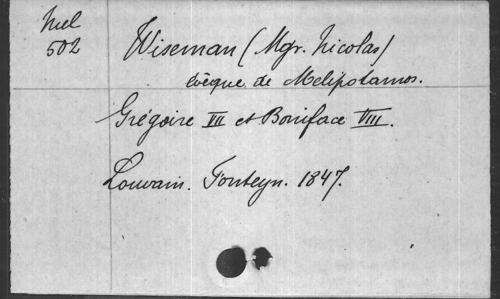 Mel
502
Wiseman (Mgr. Nicolas)
évêque de Melipotamos.
Grégoire VII et Boniface VIII.
Louvain. Fonteyn. 1847.